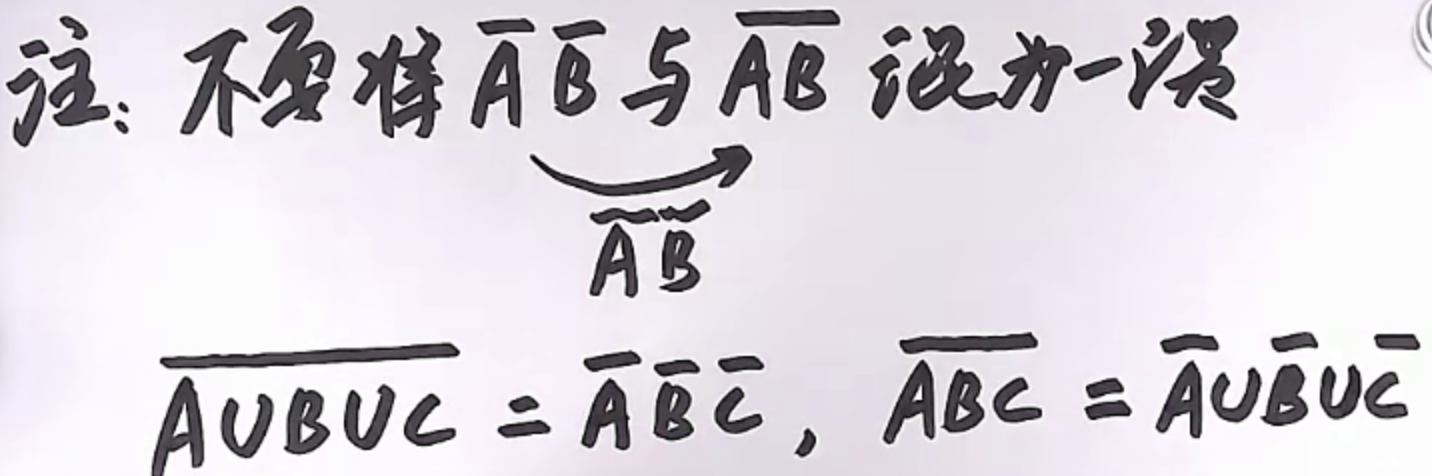 注：不要将 A̅ B̅ 与 A̅B̅ 混为一谈
A̅ B̅
A̅∪̅B̅∪̅C̅ = A̅ B̅ C̅ ， A̅B̅C̅ = A̅∪B̅∪C̅